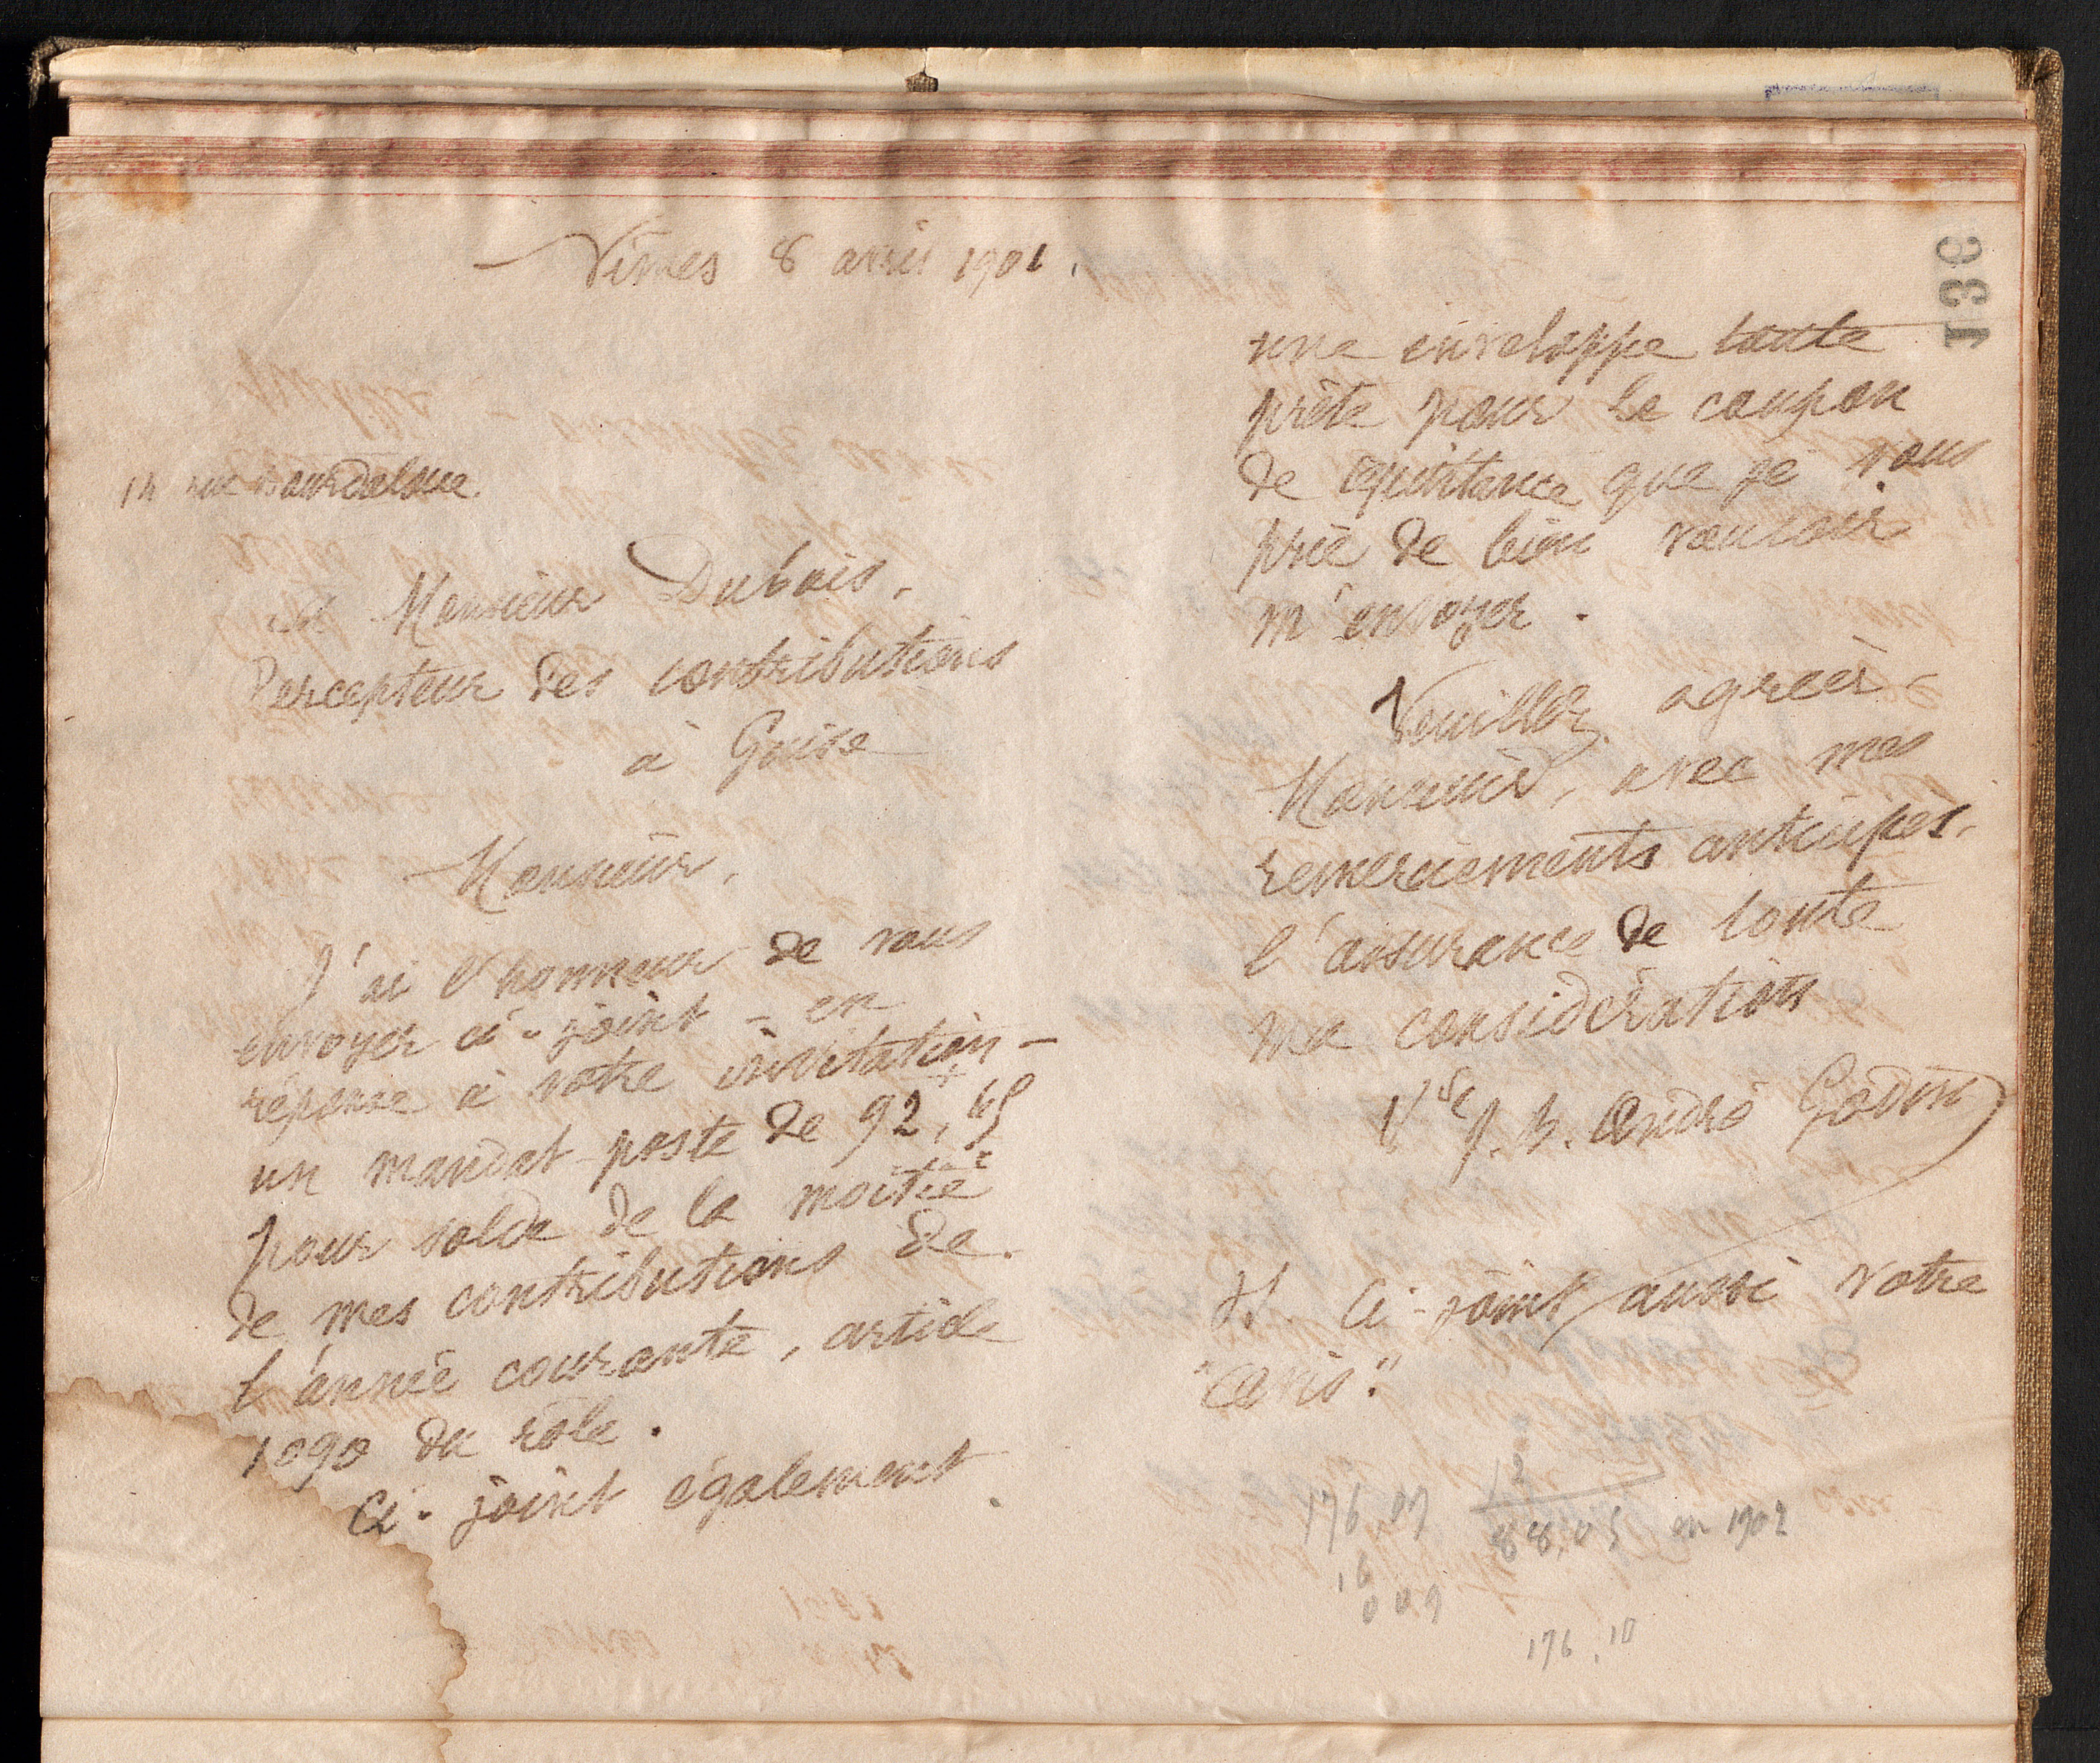 Nimes 8 avril 1901.
14 rue Bourdaloue.
A Monsieur Dubois,
Percepteur des contributions
à Guise
Monsieur,
J'ai l'honneur de vous
envoyer ci-joint - en
réponse à votre invitation -
un mandat poste de 92,45
pour solde de la moitié
de mes contributions de
l'année courante, article
1090 du rôle.
Ci-joint également
136
une enveloppe toute
prête pour le coupon
de quittance que je vous
prie de bien vouloir
m'envoyer.
Veuillez agréer,
Monsieur, avec mes
remerciements anticipés,
l'assurance de toute
ma considération
Vve J. B. André Godin
Ci-joint aussi votre
"Avis".
176,09 2
88,05 en 1902
16
009
176,10